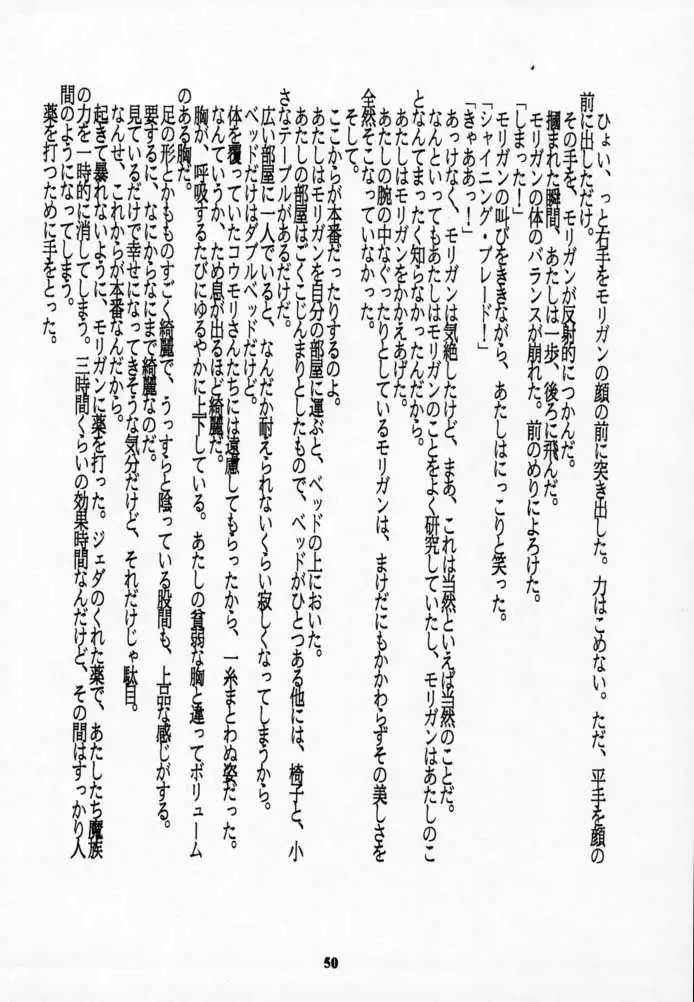 ひょい、っと右手をモリガンの顔の前に突き出した。力はこめない。ただ、平手を顔の
前に出しただけ。
その手を、モリガンが反射的につかんだ。
摑まれた瞬間、あたしは一歩、後ろに飛んだ。
モリガンの体のバランスが崩れた。前のめりによろけた。
「しまった！」
モリガンの叫びをききながら、あたしはにっこりと笑った。
「シャイニング・ブレード！」
「きゃああっ！」
あっけなく、モリガンは気絶したけど、まあ、これは当然といえば当然のことだ。
なんといってもあたしはモリガンのことをよく研究していたし、モリガンはあたしのこ
となんてまったく知らなかったんだから。
あたしはモリガンをかかえあげた。
あたしの腕の中なぐったりとしているモリガンは、まけだにもかかわらずその美しさを
全然そこなっていなかった。
そして。
ここからが本番だったりするのよ。
あたしはモリガンを自分の部屋に運ぶと、ベッドの上においた。
あたしの部屋はごくこじんまりとしたもので、ベッドがひとつある他には、椅子と、小
さなテーブルがあるだけだ。
広い部屋に一人でいると、なんだか耐えられないくらい寂しくなってしまうから。
ベッドだけはダブルベッドだけど。
体を覆っていたコウモリさんたちには遠慮してもらったから、一糸まとわぬ姿だった。
なんていうか、ため息が出るほど綺麗だ。
胸が、呼吸するたびにゆるやかに上下している。あたしの貧弱な胸と違ってボリューム
のある胸だ。
足の形とかものすごく綺麗で、うっすらと陰っている股間も、上品な感じがする。
要するに、なにからなにまで綺麗なのだ。
見ているだけで幸せになってきそうな気分だけど、それだけじゃ駄目。
なんせ、これからが本番なんだから。
起きて暴れないように、モリガンに薬を打った。ジェダのくれた薬で、あたしたち魔族
の力を一時的に消してしまう。三時間くらいの効果時間なんだけど、その間はすっかり人
間のようになってしまう。
薬を打つために手をとった。
50